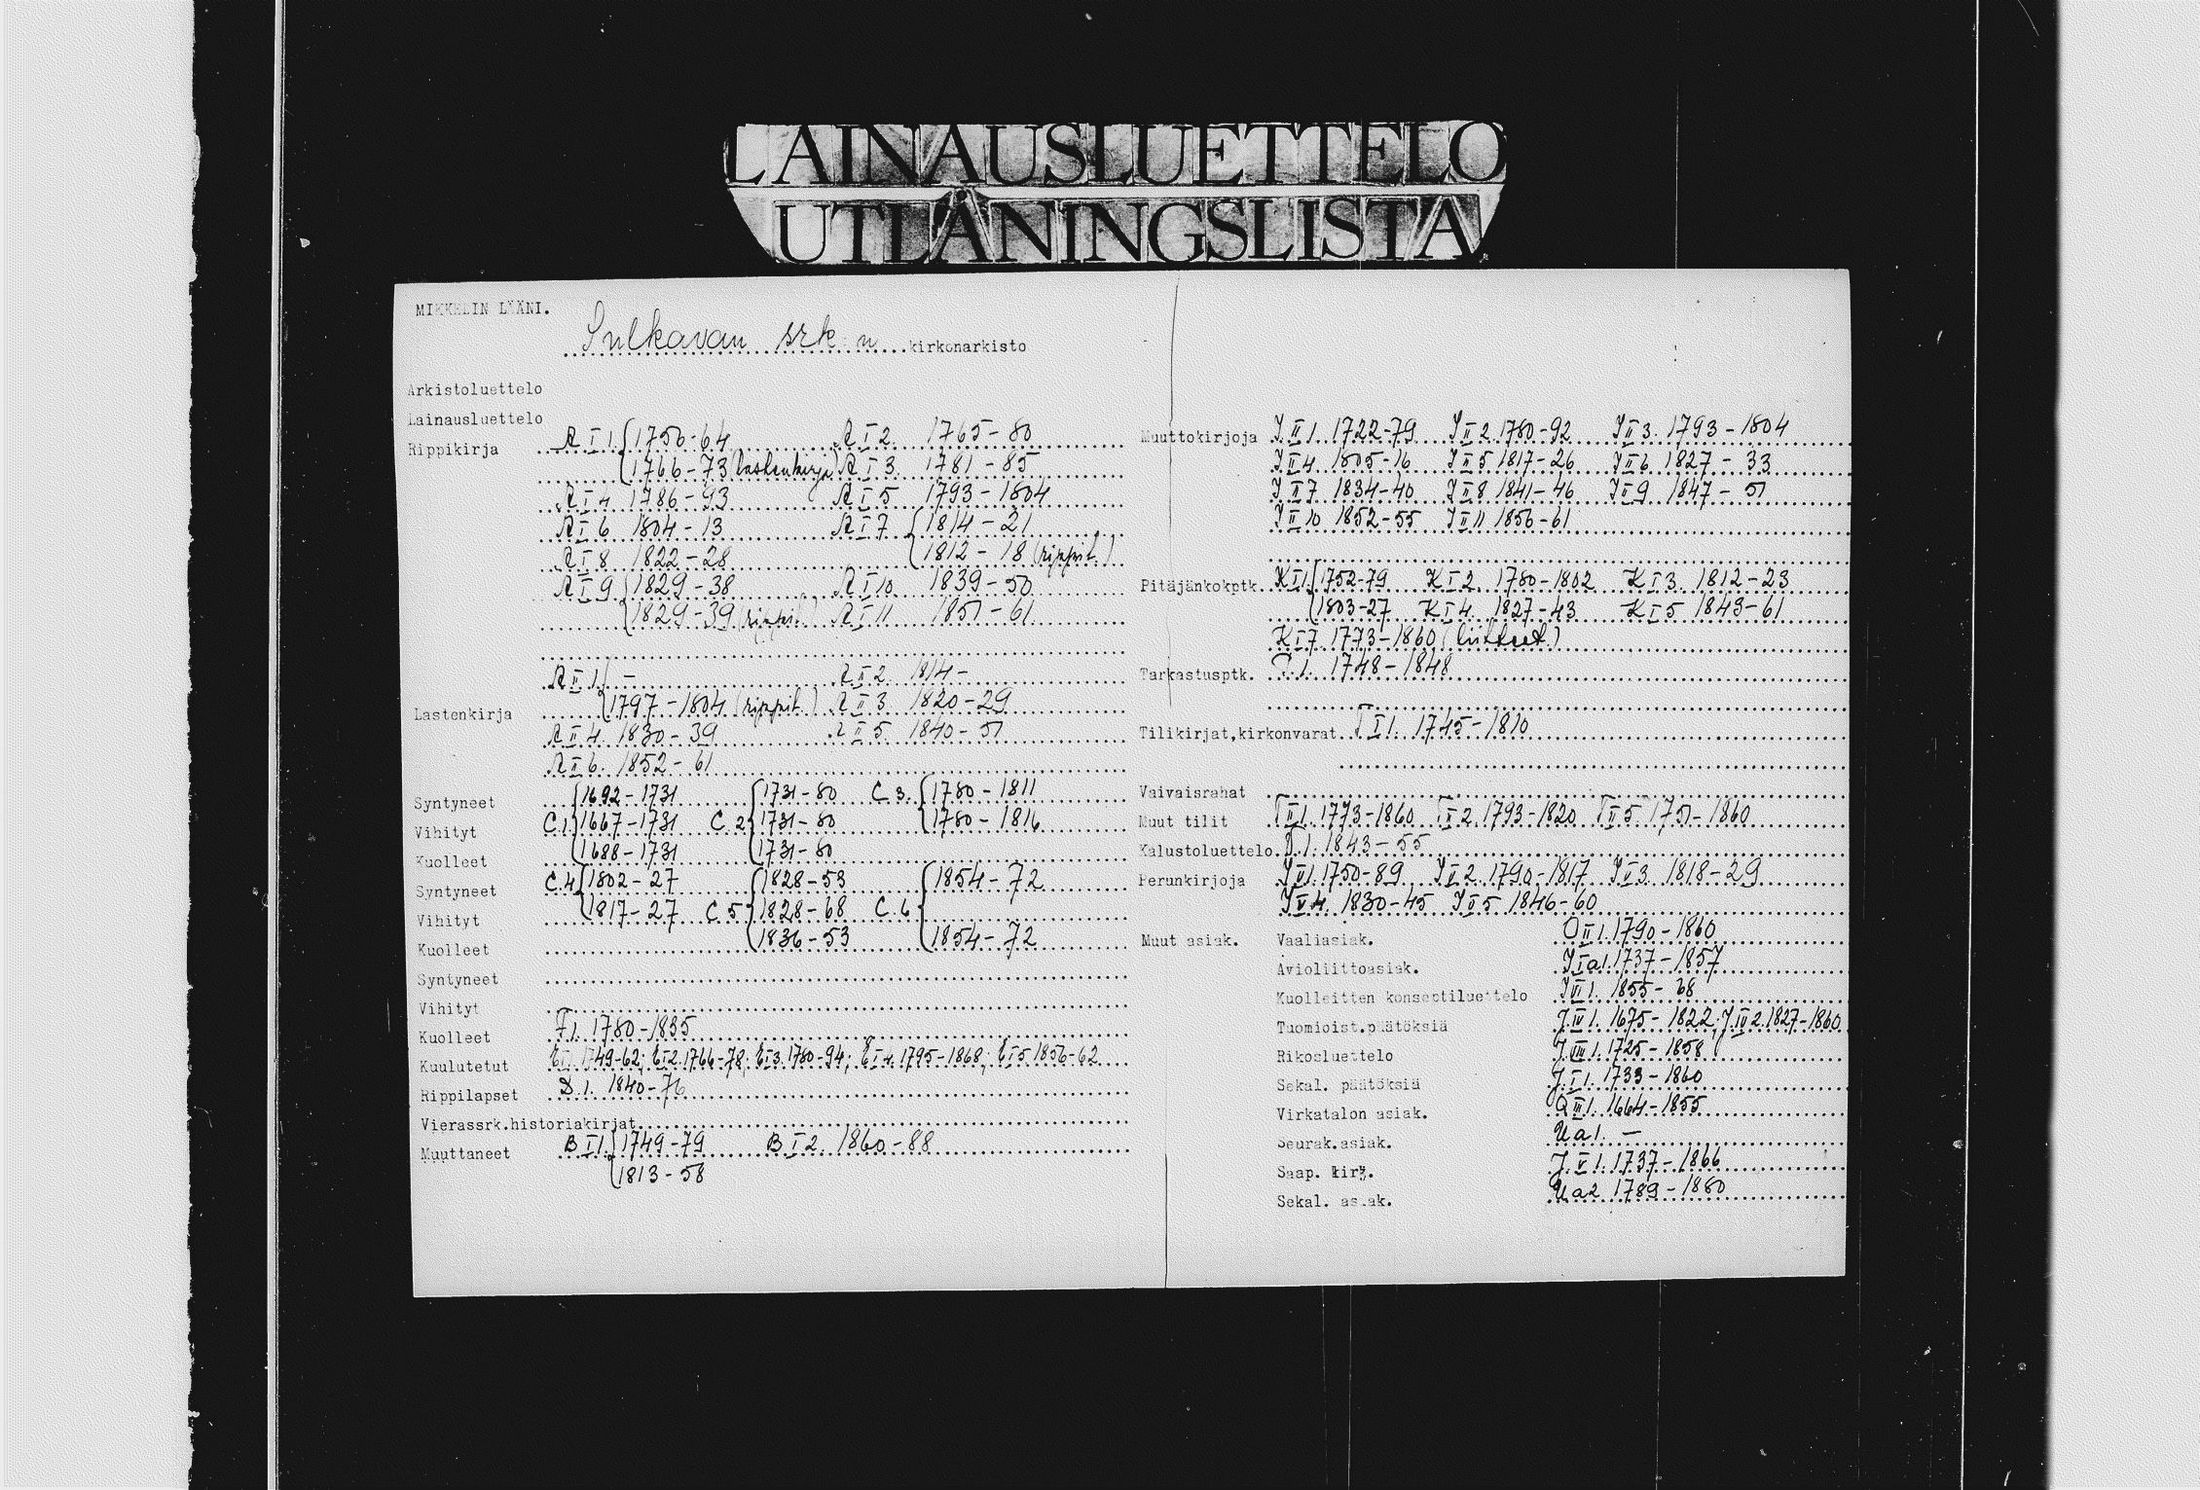 LAINAUSLUETTELO
UTLÅNINGSLISTA
MIKKELIN LÄÄNI.
Sulkavan srk:n kirkonarkisto
Arkistoluettelo
Lainausluettelo
Rippikirja A I 1. { 1750-64 A I 2. 1765-80
{ 1766-73 (lastenkirja) A I 3. 1781-85
A I 4 1786-93 A I 5 1793-1804
A I 6 1804-13 A I 7 { 1814-21
A I 8 1822-28 { 1812-18 (rippit.)
A I 9 { 1829-38 A I 10 1839-50
{ 1829-39 (rippit.) A I 11 1851-61
A II 1. { - A II 2. 1814-
Lastenkirja { 1797-1804 (rippit.) A II 3 1820-29
A II 4. 1830-39 A II 5. 1840-51
A II 6. 1852-61
Syntyneet { 1692-1731 { 1731-80 C 3. { 1780-1811
Vihityt C.1. { 1667-1731 C.2 { 1731-80 { 1780-1816
Kuolleet { 1688-1731 { 1731-80
Syntyneet C.4 { 1802-27 { 1828-53 { 1854-72
Vihityt { 1817-27 C 5 { 1828-68 C.6 {
Kuolleet { 1836-53 { 1854-72
Syntyneet
Vihityt
Kuolleet F1. 1780-1835
Kuulutetut E I 1. 1749-62; E I 2. 1766-78; E I 3. 1780-94; E I 4. 1795-1868; E I 5 1856-62
Rippilapset D.1. 1840-76
Vierassrk.historiakirjat
Muuttaneet B I 1. { 1749-79 B I 2. 1860-88
{ 1813-58
Muuttokirjoja J II 1. 1722-79 J II 2. 1780-92 J II 3. 1793-1804
J II 4 1805-16 J II 5 1817-26 J II 6. 1827-33
J II 7 1834-40 J II 8 1841-46 J II 9 1847-51
J II 10 1852-55 J II 11 1856-61
Pitäjänkokptk. K I 1. { 1752-79 K I 2. 1780-1802 K I 3. 1812-23
{ 1803-27 K I 4. 1827-43 K I 5 1843-61
K I 7. 1773-1860 (liitteet.)
Tarkastusptk. P.1. 1748-1848
Tilikirjat,kirkonvarat. T I 1. 1745-1810
Vaivaisrahat
Muut tilit T II 1. 1773-1860 T II 2. 1793-1820 T II 5. 1751-1860
Kalustoluettelo. 1. 1843-55
Perunkirjoja 1. 1750-89 2. 1790-1817 3. 1818-29
4. 1830-45 5 1846-60
Muut asiak. Vaaliasiak. O II 1. 1790-1860
Avioliittoasiak. J I a1. 1737-1857
Kuolleitten konseptiluettelo J VI 1. 1855-68
Tuomioist.päätöksiä J IV 1. 1675-1822; J IV 2. 1827-1860
Rikosluettelo J VIII 1. 1725-1858
Sekal. päätöksiä J I 1. 1733-1860
Virkatalon asiak. O III 1. 1664-1855
Seurak.asiak. U a 1. -
Saap. kirj. J V 1. 1737-1866
Sekal. asiak. U a 2 1789-1860